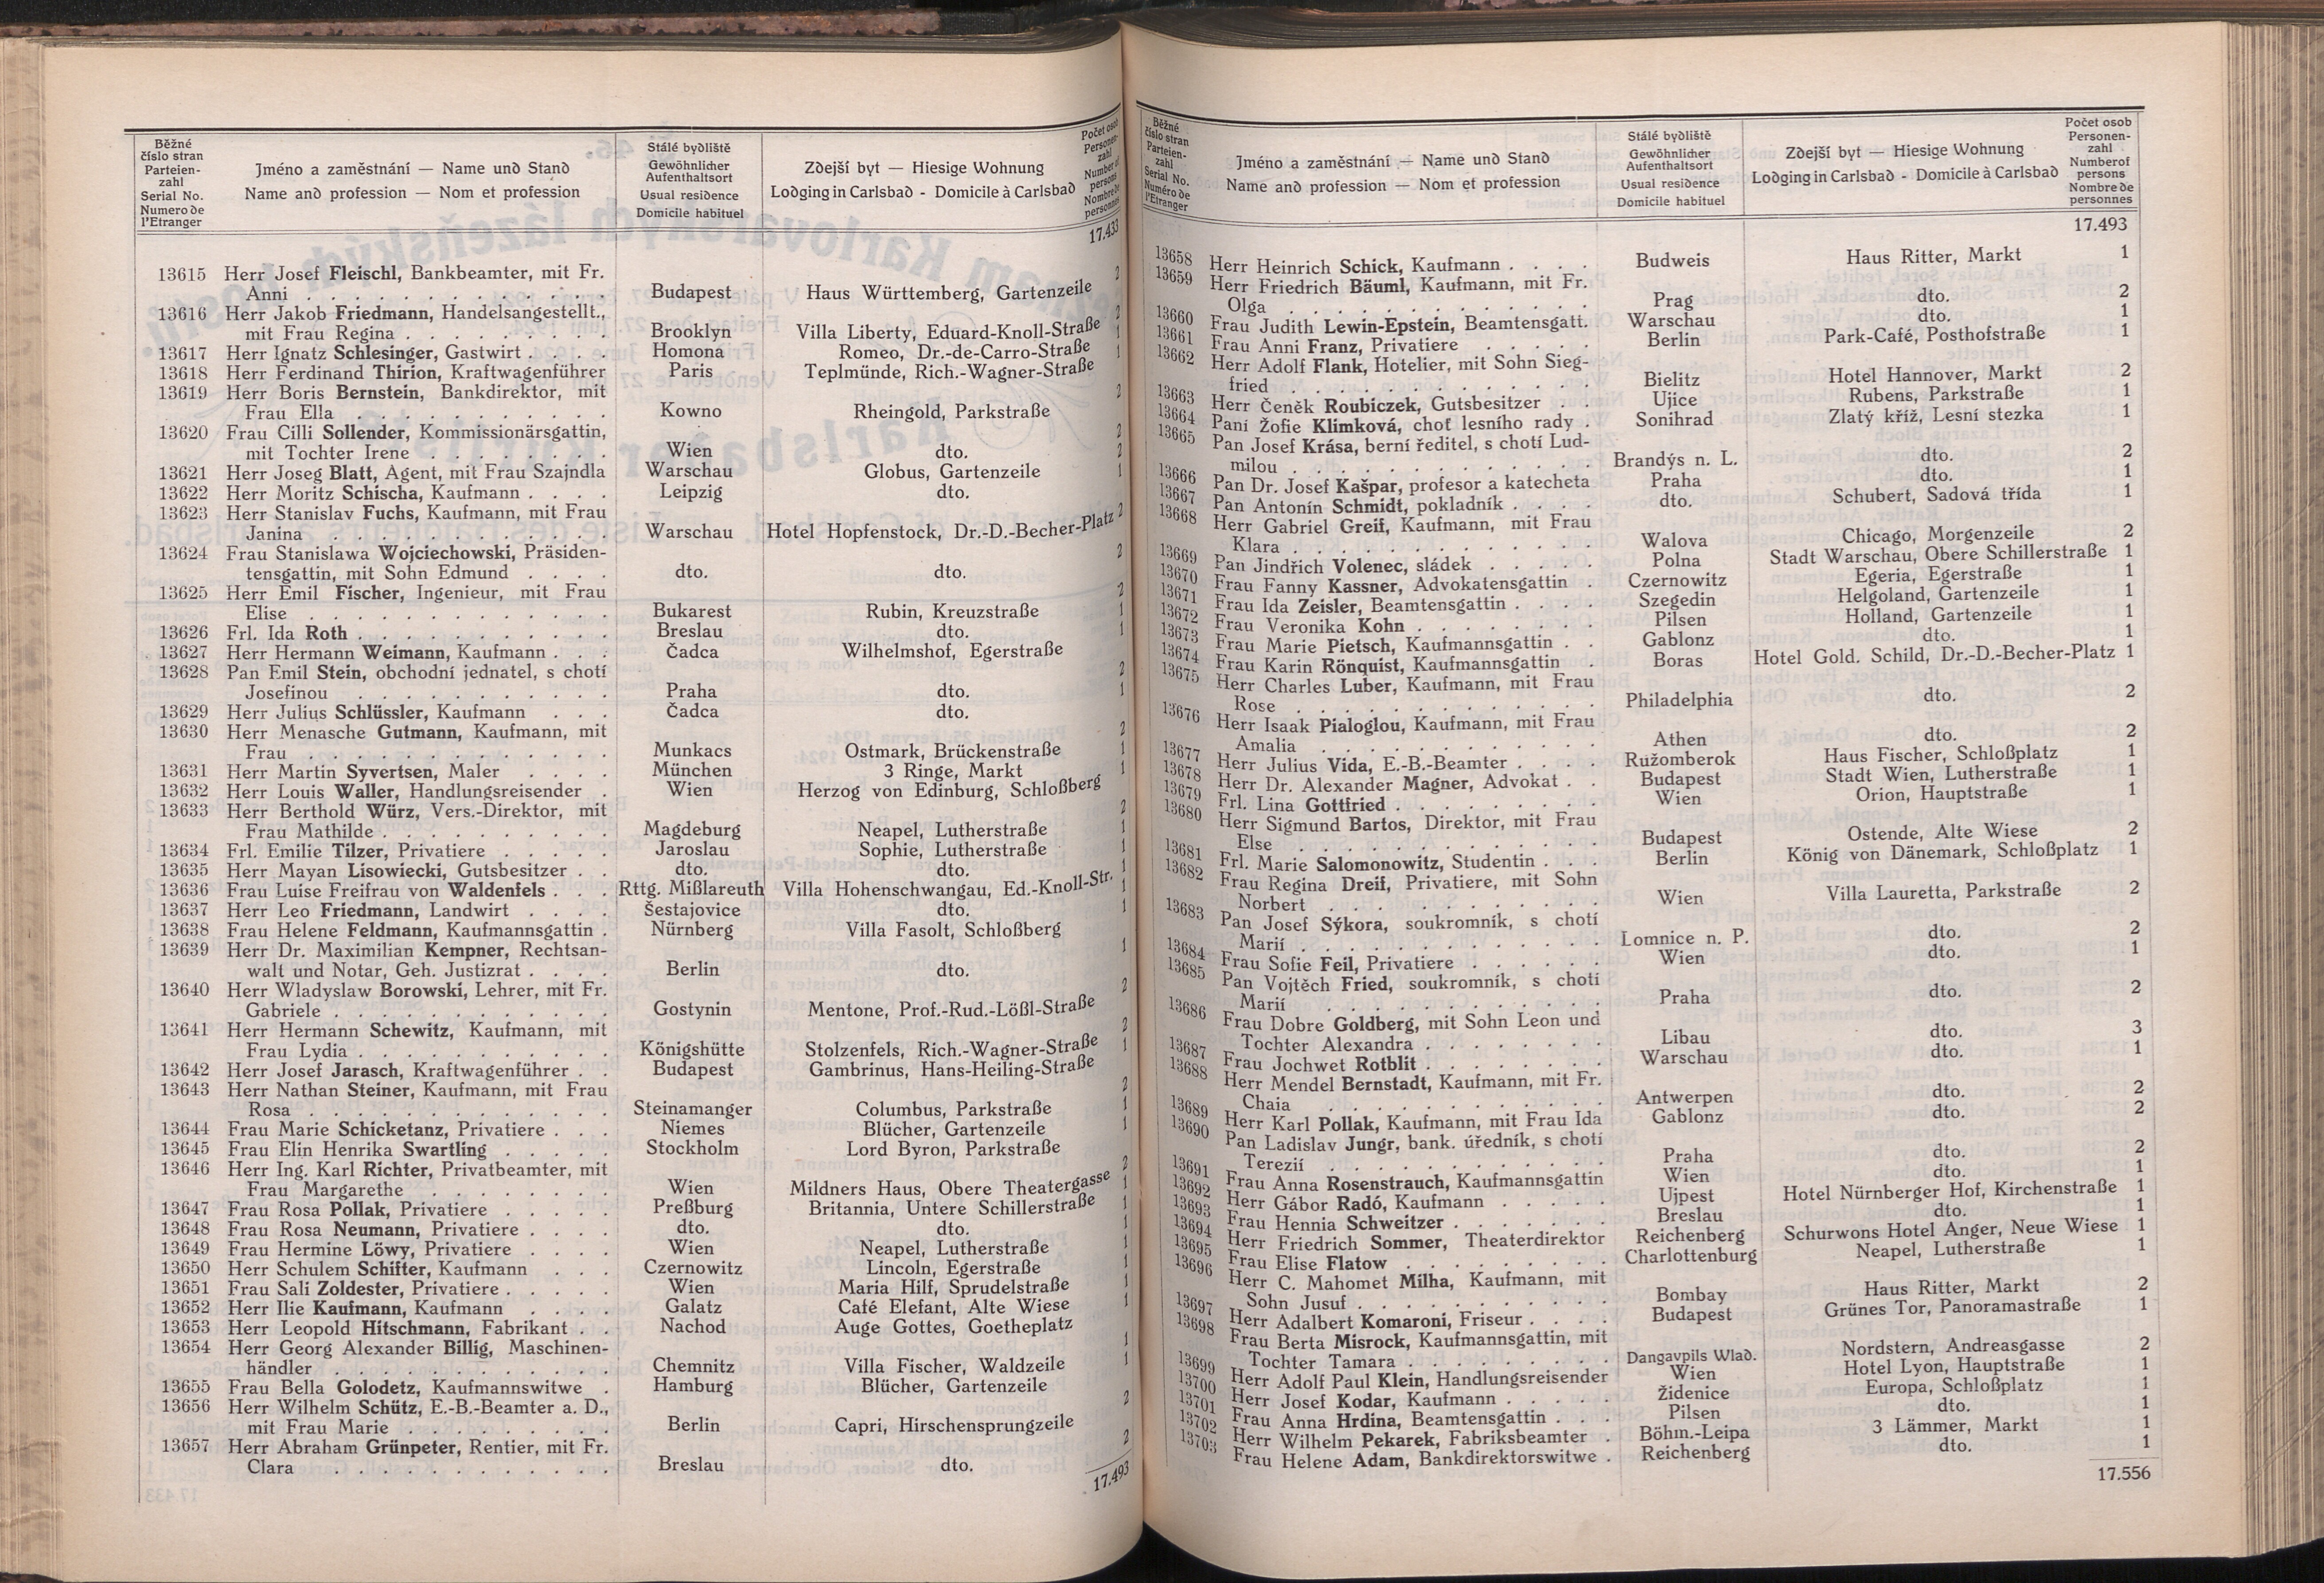 Běžné
číslo stran
Parteien-
zahl
Serial No.
Numero de
l'Etranger
Jméno a zaměstnání — Name und Stand
Name and profession — Nom et profession
Stálé bydliště
Gewöhnlicher
Aufenthaltsort
Usual residence
Domicile habituel
Zdejší byt — Hiesige Wohnung
Lodging in Carlsbad - Domicile à Carlsbad
Počet osob
Personen-
zahl
Number of
persons
Nombre de
personnes
17.433
13615 Herr Josef Fleischl, Bankbeamter, mit Fr. 2
Anni . . . Budapest Haus Württemberg, Gartenzeile
13616 Herr Jakob Friedmann, Handelsangestellt., 2
mit Frau Regina . . . Brooklyn Villa Liberty, Eduard-Knoll-Straße
13617 Herr Ignatz Schlesinger, Gastwirt . . . Homona Romeo, Dr.-de-Carro-Straße 1
13618 Herr Ferdinand Thirion, Kraftwagenführer Paris Teplmünde, Rich.-Wagner-Straße 1
13619 Herr Boris Bernstein, Bankdirektor, mit 2
Frau Ella . . . Kowno Rheingold, Parkstraße
13620 Frau Cilli Sollender, Kommissionärsgattin, 2
mit Tochter Irene . . . Wien dto.
13621 Herr Joseg Blatt, Agent, mit Frau Szajndla Warschau Globus, Gartenzeile 2
13622 Herr Moritz Schischa, Kaufmann . . . Leipzig dto. 1
13623 Herr Stanislav Fuchs, Kaufmann, mit Frau
Janina . . . Warschau Hotel Hopfenstock, Dr.-D.-Becher-Platz 2
13624 Frau Stanislawa Wojciechowski, Präsiden- 2
tensgattin, mit Sohn Edmund . . . dto. dto.
13625 Herr Emil Fischer, Ingenieur, mit Frau 2
Elise . . . Bukarest Rubin, Kreuzstraße
13626 Frl. Ida Roth . . . Breslau dto. 1
13627 Herr Hermann Weimann, Kaufmann . . . Čadca Wilhelmshof, Egerstraße 1
13628 Pan Emil Stein, obchodní jednatel, s chotí 2
Josefinou . . . Praha dto.
13629 Herr Julius Schlüssler, Kaufmann . . . Čadca dto. 1
13630 Herr Menasche Gutmann, Kaufmann, mit 2
Frau . . . Munkacs Ostmark, Brückenstraße
13631 Herr Martin Syvertsen, Maler . . . München 3 Ringe, Markt 1
13632 Herr Louis Waller, Handlungsreisender . Wien Herzog von Edinburg, Schloßberg 1
13633 Herr Berthold Würz, Vers.-Direktor, mit 2
Frau Mathilde . . . Magdeburg Neapel, Lutherstraße
13634 Frl. Emilie Tilzer, Privatiere . . . Jaroslau Sophie, Lutherstraße 1
13635 Herr Mayan Lisowiecki, Gutsbesitzer . . dto. dto. 1
13636 Frau Luise Freifrau von Waldenfels . . . Rttg. Mißlareuth Villa Hohenschwangau, Ed.-Knoll-Str. 1
13637 Herr Leo Friedmann, Landwirt . . . Šestajovice dto. 1
13638 Frau Helene Feldmann, Kaufmannsgattin . Nürnberg Villa Fasolt, Schloßberg 1
13639 Herr Dr. Maximilian Kempner, Rechtsan- 1
walt und Notar, Geh. Justizrat . . . Berlin dto.
13640 Herr Wladyslaw Borowski, Lehrer, mit Fr. 2
Gabriele . . . Gostynin Mentone, Prof.-Rud.-Lößl-Straße
13641 Herr Hermann Schewitz, Kaufmann, mit 2
Frau Lydia . . . Königshütte Stolzenfels, Rich.-Wagner-Straße
13642 Herr Josef Jarasch, Kraftwagenführer . . Budapest Gambrinus, Hans-Heiling-Straße 1
13643 Herr Nathan Steiner, Kaufmann, mit Frau 2
Rosa . . . Steinamanger Columbus, Parkstraße
13644 Frau Marie Schicketanz, Privatiere . . . Niemes Blücher, Gartenzeile 1
13645 Frau Elin Henrika Swartling . . . Stockholm Lord Byron, Parkstraße 1
13646 Herr Ing. Karl Richter, Privatbeamter, mit 2
Frau Margarethe . . . Wien Mildners Haus, Obere Theatergasse
13647 Frau Rosa Pollak, Privatiere . . . Preßburg Britannia, Untere Schillerstraße 1
13648 Frau Rosa Neumann, Privatiere . . . dto. dto. 1
13649 Frau Hermine Löwy, Privatiere . . . Wien Neapel, Lutherstraße 1
13650 Herr Schulem Schifter, Kaufmann . . . Czernowitz Lincoln, Egerstraße 1
13651 Frau Sali Zoldester, Privatiere . . . Wien Maria Hilf, Sprudelstraße 1
13652 Herr Ilie Kaufmann, Kaufmann . . . Galatz Café Elefant, Alte Wiese 1
13653 Herr Leopold Hitschmann, Fabrikant . . Nachod Auge Gottes, Goetheplatz 1
13654 Herr Georg Alexander Billig, Maschinen- 1
händler . . . Chemnitz Villa Fischer, Waldzeile
13655 Frau Bella Golodetz, Kaufmannswitwe . Hamburg Blücher, Gartenzeile 1
13656 Herr Wilhelm Schütz, E.-B.-Beamter a. D., 2
mit Frau Marie . . . Berlin Capri, Hirschensprungzeile
13657 Herr Abraham Grünpeter, Rentier, mit Fr. 2
Clara . . . Breslau dto.
17.493
Běžné
číslo stran
Parteien-
zahl
Serial No.
Numéro de
l'Etranger
Jméno a zaměstnání — Name und Stand
Name and profession — Nom et profession
Stálé bydliště
Gewöhnlicher
Aufenthaltsort
Usual residence
Domicile habituel
Zdejší byt — Hiesige Wohnung
Lodging in Carlsbad - Domicile à Carlsbad
Počet osob
Personen-
zahl
Number of
persons
Nombre de
personnes
17.493
13658 Herr Heinrich Schick, Kaufmann . . . Budweis Haus Ritter, Markt 1
13659 Herr Friedrich Bäuml, Kaufmann, mit Fr.
Olga . . . Prag dto. 2
13660 Frau Judith Lewin-Epstein, Beamtensgatt. Warschau dto. 1
13661 Frau Anni Franz, Privatiere . . . Berlin Park-Café, Posthofstraße 1
13662 Herr Adolf Flank, Hotelier, mit Sohn Sieg-
fried . . . Bielitz Hotel Hannover, Markt 2
13663 Herr Čeněk Roubiczek, Gutsbesitzer . . Ujice Rubens, Parkstraße 1
13664 Paní Žofie Klimková, choť lesního rady . Sonihrad Zlatý kříž, Lesní stezka 1
13665 Pan Josef Krása, berní ředitel, s chotí Lud-
milou . . . Brandýs n. L. dto. 2
13666 Pan Dr. Josef Kašpar, profesor a katecheta Praha dto. 1
13667 Pan Antonín Schmidt, pokladník . . . dto. Schubert, Sadová třída 1
13668 Herr Gabriel Greif, Kaufmann, mit Frau
Klara . . . Walova Chicago, Morgenzeile 2
13669 Pan Jindřich Volenec, sládek . . . Polna Stadt Warschau, Obere Schillerstraße 1
13670 Frau Fanny Kassner, Advokatensgattin . Czernowitz Egeria, Egerstraße 1
13671 Frau Ida Zeisler, Beamtensgattin . . . Szegedin Helgoland, Gartenzeile 1
13672 Frau Veronika Kohn . . . Pilsen Holland, Gartenzeile 1
13673 Frau Marie Pietsch, Kaufmannsgattin . . Gablonz dto. 1
13674 Frau Karin Rönquist, Kaufmannsgattin . Boras Hotel Gold. Schild, Dr.-D.-Becher-Platz 1
13675 Herr Charles Luber, Kaufmann, mit Frau
Rose . . . Philadelphia dto. 2
13676 Herr Isaak Pialoglou, Kaufmann, mit Frau
Amalia . . . Athen dto. 2
13677 Herr Julius Vida, E.-B.-Beamter . . . Ružomberok Haus Fischer, Schloßplatz 1
13678 Herr Dr. Alexander Magner, Advokat . . Budapest Stadt Wien, Lutherstraße 1
13679 Frl. Lina Gottfried . . . Wien Orion, Hauptstraße 1
13680 Herr Sigmund Bartos, Direktor, mit Frau
Else . . . Budapest Ostende, Alte Wiese 2
13681 Frl. Marie Salomonowitz, Studentin . . . Berlin König von Dänemark, Schloßplatz 1
13682 Frau Regina Dreif, Privatiere, mit Sohn
Norbert . . . Wien Villa Lauretta, Parkstraße 2
13683 Pan Josef Sýkora, soukromník, s chotí
Marií . . . Lomnice n. P. dto. 2
13684 Frau Sofie Feil, Privatiere . . . Wien dto. 1
13685 Pan Vojtěch Fried, soukromník, s chotí
Marií . . . Praha dto. 2
13686 Frau Dobre Goldberg, mit Sohn Leon und
Tochter Alexandra . . . Libau dto. 3
13687 Frau Jochwet Rotblit . . . Warschau dto. 1
13688 Herr Mendel Bernstadt, Kaufmann, mit Fr.
Chaia . . . Antwerpen dto. 2
13689 Herr Karl Pollak, Kaufmann, mit Frau Ida Gablonz dto. 2
13690 Pan Ladislav Jungr, bank. úředník, s chotí
Terezií . . . Praha dto. 2
13691 Frau Anna Rosenstrauch, Kaufmannsgattin Wien dto. 1
13692 Herr Gábor Radó, Kaufmann . . . Ujpest Hotel Nürnberger Hof, Kirchenstraße 1
13693 Frau Hennia Schweitzer . . . Breslau dto. 1
13694 Herr Friedrich Sommer, Theaterdirektor Reichenberg Schurwons Hotel Anger, Neue Wiese 1
13695 Frau Elise Flatow . . . Charlottenburg Neapel, Lutherstraße 1
13696 Herr C. Mahomet Milha, Kaufmann, mit
Sohn Jusuf . . . Bombay Haus Ritter, Markt 2
13697 Herr Adalbert Komaroni, Friseur . . . Budapest Grünes Tor, Panoramastraße 1
13698 Frau Berta Misrock, Kaufmannsgattin, mit
Tochter Tamara . . . Dangavpils Wlad. Nordstern, Andreasgasse 2
13699 Herr Adolf Paul Klein, Handlungsreisender Wien Hotel Lyon, Hauptstraße 1
13700 Herr Josef Kodar, Kaufmann . . . Židenice Europa, Schloßplatz 1
13701 Frau Anna Hrdina, Beamtensgattin . . . Pilsen dto. 1
13702 Herr Wilhelm Pekarek, Fabriksbeamter . Böhm.-Leipa 3 Lämmer, Markt 1
13703 Frau Helene Adam, Bankdirektorswitwe . Reichenberg dto. 1
17.556